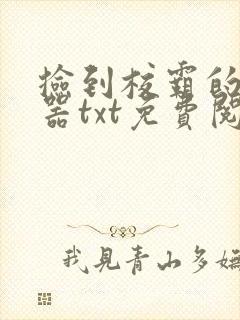 撿到校霸的
器txt免費閱
我見青山多嫵